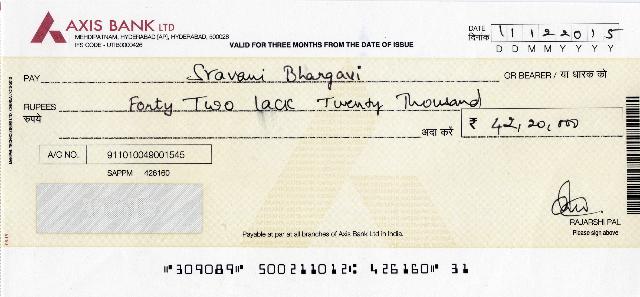 AXIS BANK LTD
MEHDIPATNAM, HYDERABAD [AP], HYDERABAD, 500028
IFS CODE - UTIB0000426
VALID FOR THREE MONTHS FROM THE DATE OF ISSUE
DATE
दिनांक 11122015
D D M M Y Y Y Y
PAY Sravani Bhargavi OR BEARER / या धारक को
RUPEES Forty Two lack Twenty Thousand
रुपये
अदा करें ₹ 42,20,000
A/C NO. 911010049001545
SAPPM 426160
RAJARSHI PAL
Payable at par at all branches of Axis Bank Ltd in India.
Please sign above
"309089" 500211012: 426160" 31